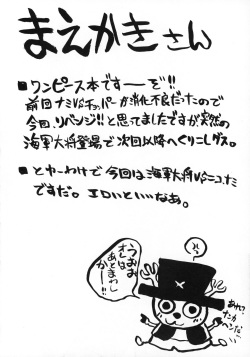 まえかきさん
■ワンピース本ですーーーぞ!!
前回ナミVSチョッパーが消化不良だったので
今回リベンジ!!と思ってましたですが突然の
海軍大将登場で次回以降へくりこしゲス。
■とゆーわけで今回は海軍大将VSニコ・ナミ
ですだ。エロいといいなあ。
うおお
オレは
あとまわし
かー!!
あれ?
なんか
ヘンだ